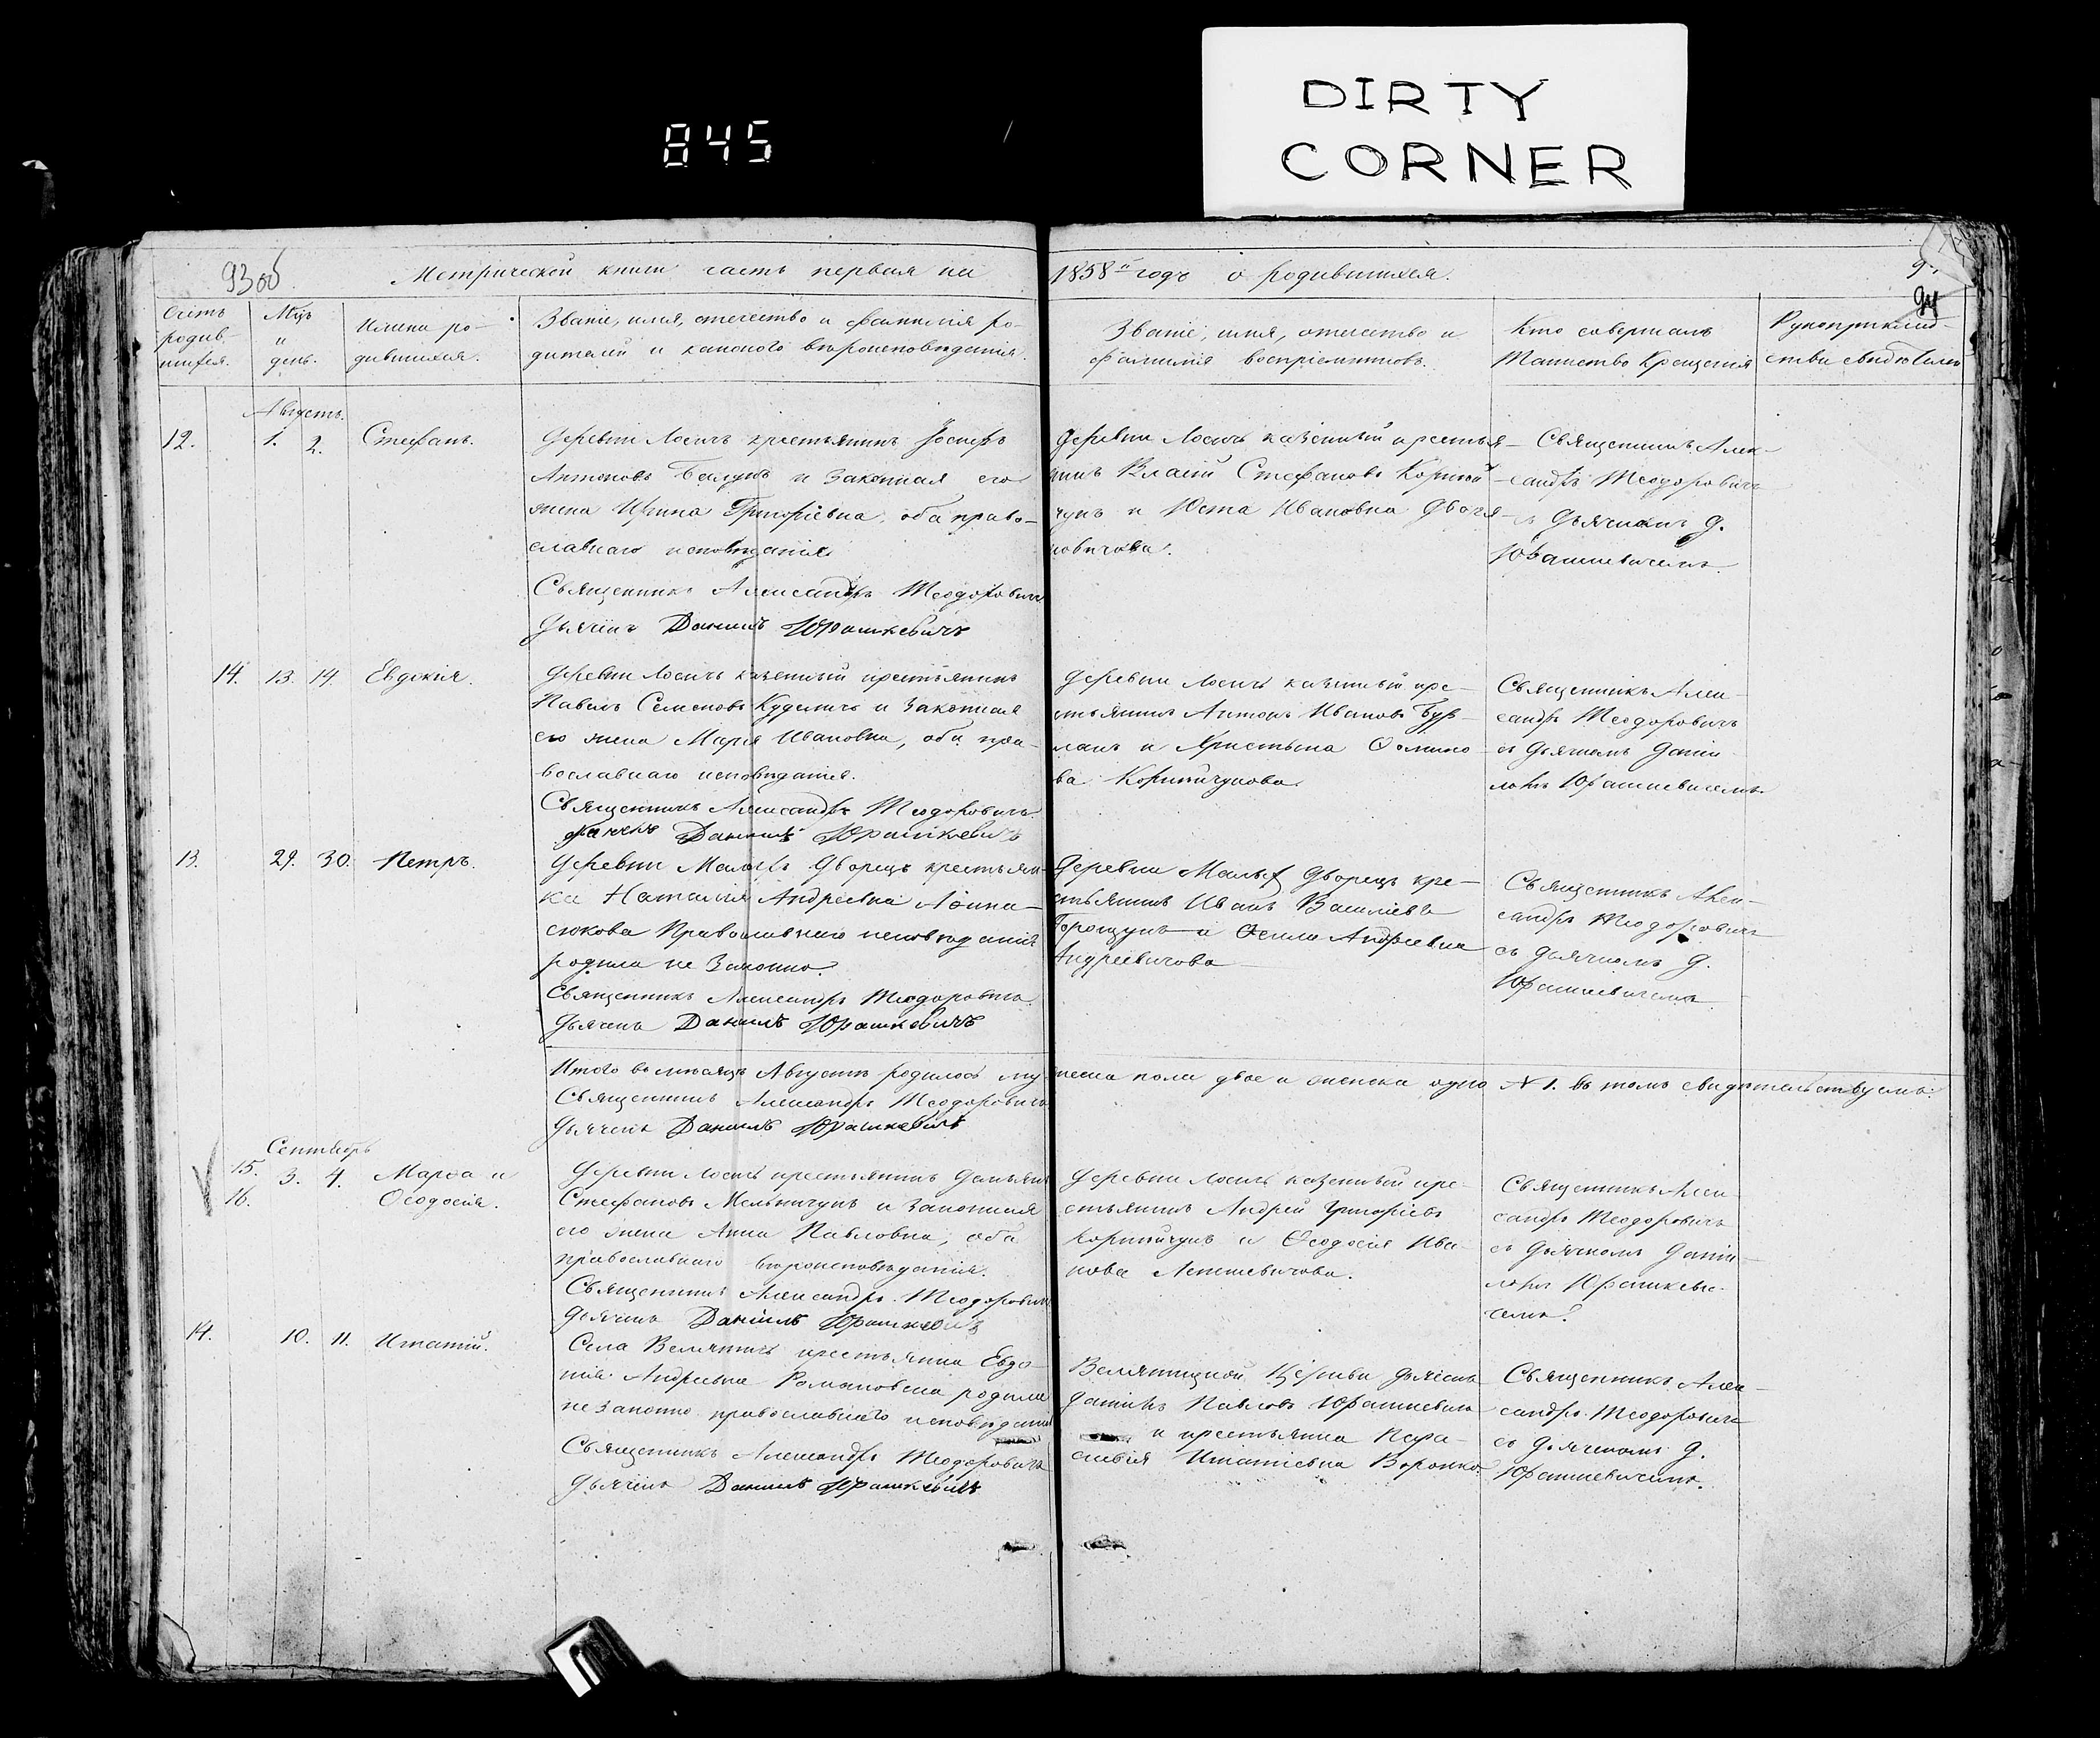 DIRTY
CORNER
845
93 об
Метрической книги часть первая на 1858й годъ о родившихся.
94
Счетъ родив-шихся.
Мцъ и день.
Имена ро-
дившихся.
Званіе, имя, отечество и фамилія ро-
дителей и какого вѣроисповѣданія.
Званіе, имя, отечество и
фамилія воспріемниковъ.
Кто совершалъ
Таинство Крещенія
Рукоприклад-
ства свидѣтелей
Августъ.
12. 1. 2. Стефанъ.
Деревни Лосичъ крестьянинъ Іосифъ
Антоновъ и законная его
жена Ирина Григоріевна, оба право-
славнаго исповѣданія
Священникъ Александръ Теодоровичъ
Дьячекъ Даніилъ Юрашкевичъ
Деревни Лосичъ казенный крестья-
нинъ Власій Стефановъ
и Юста Ивановна
Священникъ Алек-
сандръ Теодоровичъ
съ дьячкомъ Д.
Юрашкевичемъ.
14. 13. 14. Евдокія.
Деревни Лосичъ казенный крестьянинъ
Павелъ Семеновъ Куделичъ и законная
его жена Марія Ивановна, оба пра-
вославнаго исповѣданія.
Священникъ Александръ Теодоровичъ
Дьячекъ Даніилъ Юрашкевичъ
Деревни Лосичъ казенный кре-
стьянинъ Антонъ Ивановъ Бур-
лакъ и Христына Ѳомино-
ва Корпничукова
Священникъ Алек-
сандръ Теодоровичъ
съ дьячкомъ Дании-
ломъ Юрашкевичемъ.
13. 29. 30. Петръ.
Деревни Малыхъ Дворецъ крестьян-
ка Наталія Андреевна Аѳана-
сюкова Православнаго исповѣданія
родила не законно.
Священникъ Александръ Теодоровичъ.
Дьячекъ Даніилъ Юрашкевичъ
Деревни Малых Дворецъ кре-
стьянинъ Иванъ Василіевъ
и Ѳекла Андреевна
Андреевичова
Священникъ Алек-
сандръ Теодоровичъ
съ дьячкомъ Д.
Юрашкевичемъ
Итого въ мѣсяцѣ Августѣ родилось му-
жеска пола двое и женска одно № 1. въ томъ свидѣтельствуемъ:
Священникъ Александръ Теодоровичъ
Дьячекъ Даніилъ Юрашкевичъ
Сентябрь
15. 3. 4. Марѳа и
16. Ѳеодосія.
Деревни Лосичъ крестьянинъ Даміянъ
Стефановъ Мельничукъ и законная
его жена Анна Павловна, оба
православнаго вѣроисповѣданія.
Священникъ Александръ Теодоровичъ
Дьячекъ Даніилъ Юрашкевичъ
Деревни Лосичъ казенный кре-
стьянинъ Андрей Григоріевъ
Корпничукъ и Ѳеодосія Ива-
нова
Священникъ Алек-
сандръ Теодоровичъ
съ дьячкомъ Дании-
ломъ Юрашкеви-
чемъ.
14. 10. 11. Игнатій.
Села Велятичъ крестьянка Евдо-
кія Андреевна Романовска родила
не законно православнаго исповѣданія
Священникъ Александръ Теодоровичъ
Дьячекъ Даніилъ Юрашкевичъ
Велятицкой Церкви дьячекъ
Даніилъ Павловъ Юрашкевичъ
и крестьянка Пара-
скевія Игнатіевна Воронко.
Священникъ Алек-
сандръ Теодоровичъ
съ дьячкомъ Д.
Юрашкевичемъ.